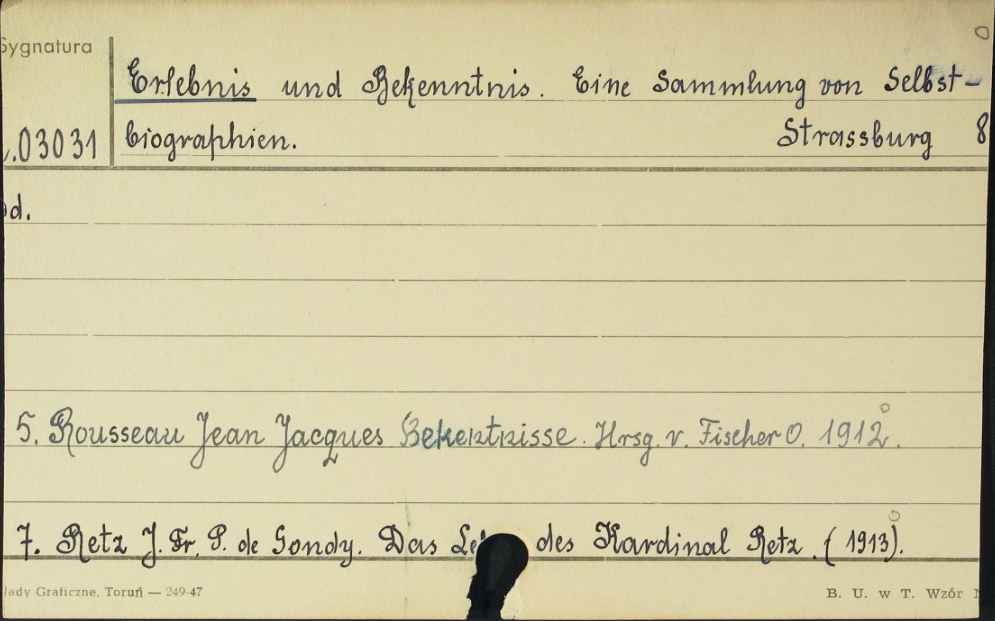 Sygnatura
Erlebnis und Bekenntnis. Eine Sammlung von Selbst-
.03031 biographien. Strassburg 8
od.
5. Rousseau Jean Jacques Bekentnisse. Hrsg. v. Fischer O. 1912.
7. Retz J. Fr. P. de Gondy. Das des Kardinal Retz. (1913).
łady Graficzne, Toruń — 249-47
B. U. w T. Wzór